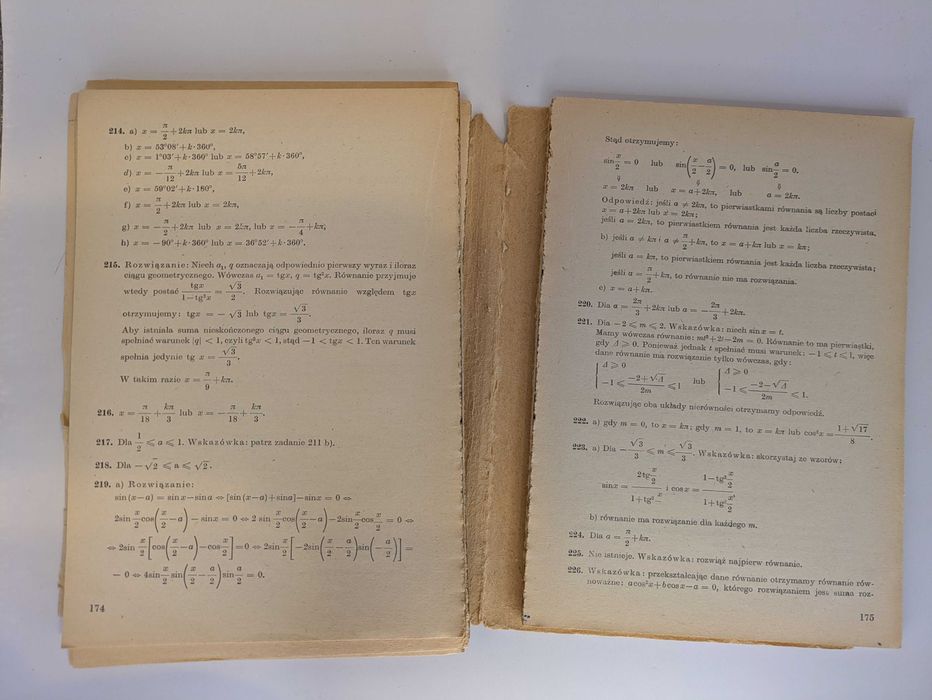 214. a) x = π/2 + 2kπ lub x = 2kπ,
b) x = 53°08′ + k·360°,
c) x = 1°03′ + k·360° lub x = 58°57′ + k·360°,
d) x = −π/12 + 2kπ lub x = 5π/12 + 2kπ,
e) x = 59°02′ + k·180°,
f) x = π/2 + 2kπ lub x = 2kπ,
g) x = −π/2 + 2kπ lub x = 2kπ, lub x = −π/4 + kπ,
h) x = −90° + k·360° lub x = 36°52′ + k·360°.
215. Rozwiązanie: Niech a₁, q oznaczają odpowiednio pierwszy wyraz i iloraz
ciągu geometrycznego. Wówczas a₁ = tgx, q = tg²x. Równanie przyjmuje
wtedy postać tgx/(1−tg²x) = √3/2. Rozwiązując równanie względem tgx
otrzymujemy: tgx = −√3 lub tgx = √3/3.
Aby istniała suma nieskończonego ciągu geometrycznego, iloraz q musi
spełniać warunek |q| < 1, czyli tg²x < 1, stąd −1 < tgx < 1. Ten warunek
spełnia jedynie tg x = √3/3.
W takim razie x = π/9 + kπ.
216. x = π/18 + kπ/3 lub x = −π/18 + kπ/3.
217. Dla 1/2 ⩽ a ⩽ 1. Wskazówka: patrz zadanie 211 b).
218. Dla −√2 ⩽ a ⩽ √2.
219. a) Rozwiązanie:
sin(x−a) = sinx−sina ⇔ [sin(x−a)+sina]−sinx = 0 ⇔
2sin x/2 cos(x/2 − a) − sinx = 0 ⇔ 2 sin x/2 cos(x/2 − a) − 2sin x/2 cos x/2 = 0 ⇔
⇔ 2sin x/2 [cos(x/2 − a) − cos x/2] = 0 ⇔ 2sin x/2 [−2sin(x/2 − a/2)sin(−a/2)] =
− 0 ⇔ 4sin x/2 sin(x/2 − a/2)sin a/2 = 0.
174
Stąd otrzymujemy:
sin x/2 = 0 lub sin(x/2 − a/2) = 0, lub sin a/2 = 0.
⇕ ⇕ ⇕
x = 2kπ lub x = a+2kπ, lub a = 2kπ.
Odpowiedź: jeśli a ≠ 2kπ, to pierwiastkami równania są liczby postaci
x = a+2kπ lub x = 2kπ;
jeśli a = 2kπ, to pierwiastkiem równania jest każda liczba rzeczywista.
b) jeśli a ≠ kπ i a ≠ π/2 + kπ, to x = a+kπ lub x = kπ;
jeśli a = kπ, to pierwiastkiem równania jest każda liczba rzeczywista;
jeśli a = π/2 + kπ, to równanie nie ma rozwiązania.
c) x = a+kπ.
220. Dla a = 2π/3 + 2kπ lub a = −2π/3 + 2kπ.
221. Dla −2 ⩽ m ⩽ 2. Wskazówka: niech sin x = t.
Mamy wówczas równanie: mt²+2t−2m = 0. Równanie to ma pierwiastki,
gdy Δ ⩾ 0. Ponieważ jednak t spełniać musi warunek: −1 ⩽ t ⩽ 1, więc
dane równanie ma rozwiązanie tylko wówczas, gdy:
{ Δ ⩾ 0 { Δ ⩾ 0
−1 ⩽ (−2+√Δ)/2m ⩽ 1 lub −1 ⩽ (−2−√Δ)/2m ⩽ 1.
Rozwiązując oba układy nierówności otrzymamy odpowiedź.
222. a) gdy m = 0, to x = kπ; gdy m = 1, to x = kπ lub cos²x = (1+√17)/8.
223. a) Dla −√3/3 ⩽ m ⩽ √3/3. Wskazówka: skorzystaj ze wzorów:
sinx = (2tg x/2)/(1+tg² x/2) i cosx = (1−tg² x/2)/(1+tg² x/2)
b) równanie ma rozwiązanie dla każdego m.
224. Dla a = π/2 + kπ.
225. Nie istnieje. Wskazówka: rozwiąż najpierw równanie.
226. Wskazówka: przekształcając dane równanie otrzymamy równanie rów-
noważne: acos²x+bcosx−a = 0, którego rozwiązaniem jest suma roz-
175